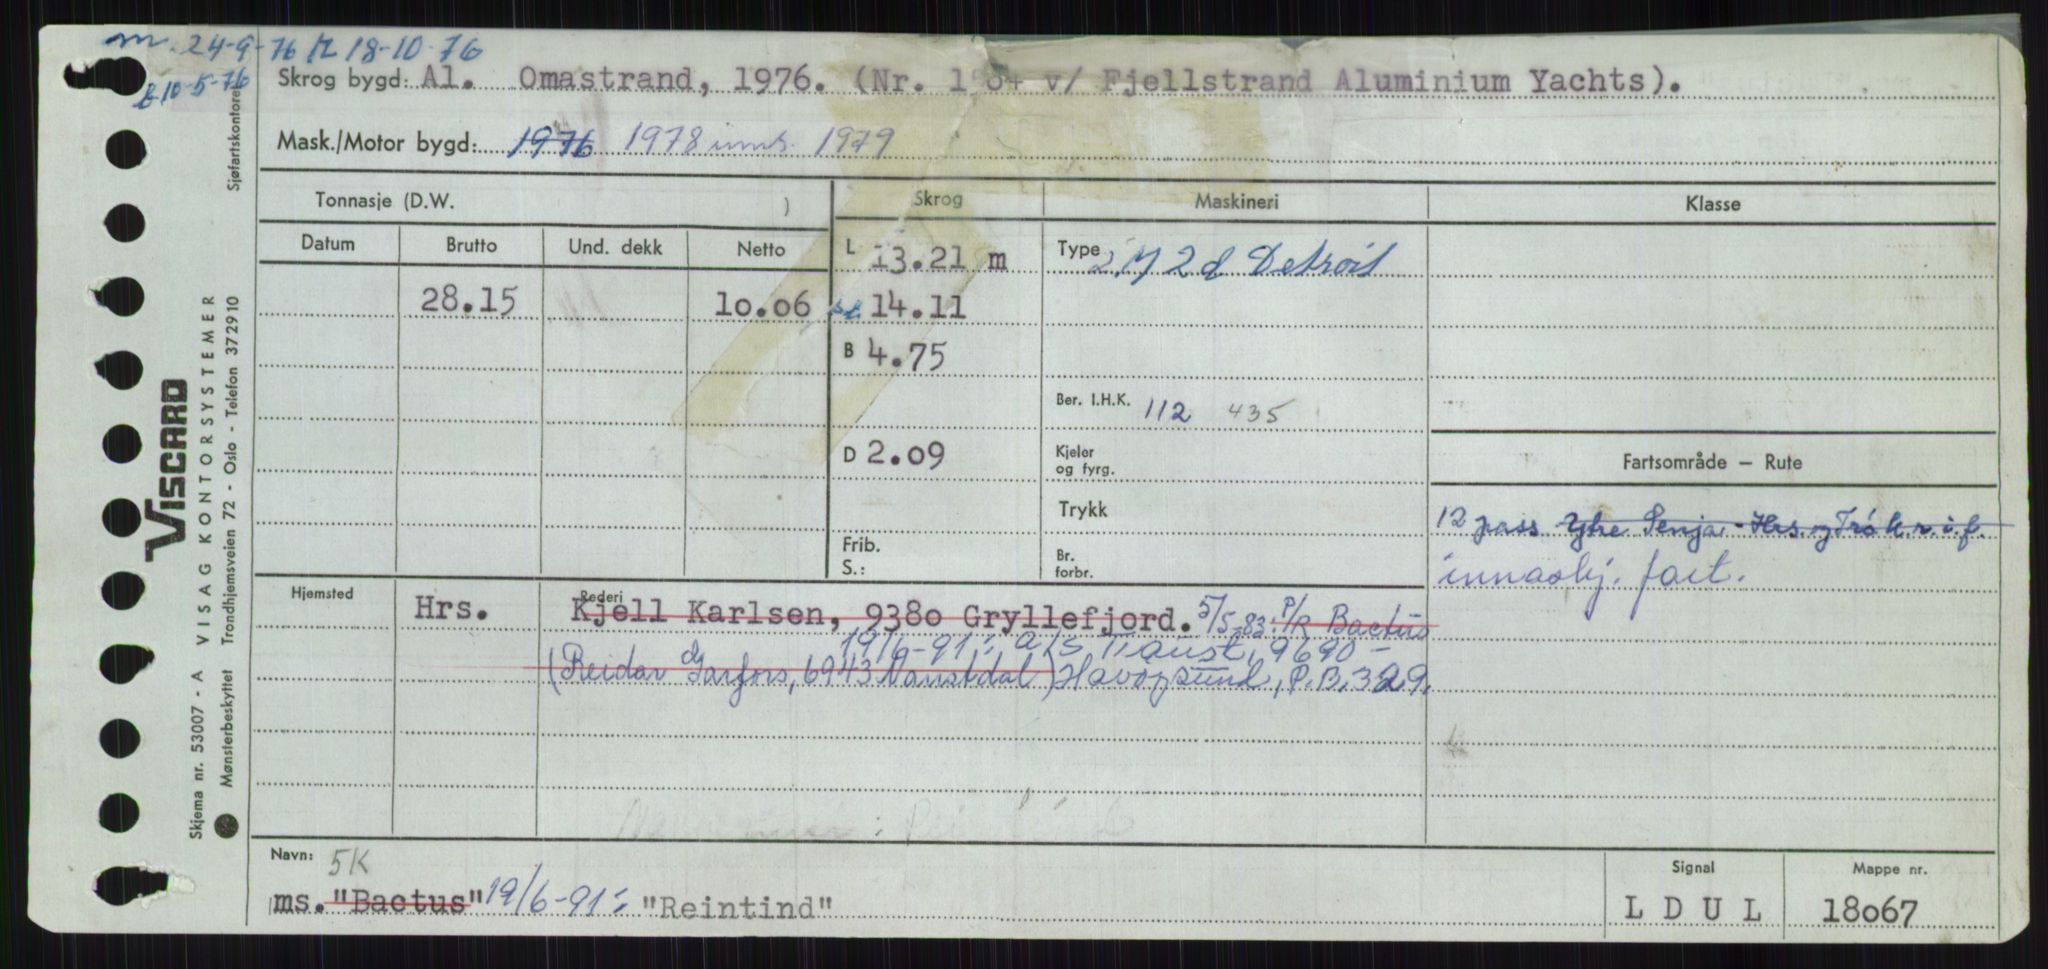 m. 24-9-76 18-10-76
10-5-76
Skrog bygd: Al. Omastrand, 1976. (Nr. v/ Fjellstrand Aluminium Yachts).
Mask./Motor bygd: 1976 1978 1979
Sjøfartskontoret
Tonnasje (D.W. )
Skrog
Maskineri
Klasse
Datum
Brutto
Und. dekk
Netto
L 13.21 m
Type 2 M 2d Detroit
28.15
10.06
14.11
B 4.75
Ber. I.H.K. 112 435
D 2.09
Kjeler og fyrg.
Fartsområde – Rute
Trykk
12 pass Ytre Senja - Hrs. og k.r.i.f.
Frib.
S.:
Br. forbr.
innaskj. fart.
Hjemsted
Rederi
Hrs. Kjell Karlsen, 9380 Gryllefjord. 5/5-83: P/R Bactus
19/6-91: A/S 9690 -
(Reidar Naustdal) Havøysund, P.B. 329.
Navn: 5K
ms. "Bactus" 19/6-91: "Reintind"
Signal
L D U L
Mappe nr.
18067
VISCARD
VISAG KONTORSYSTEMER
Skjema nr. 53007 - A
Mønsterbeskyttet Trondhjemsveien 72 - Oslo - Telefon 372910